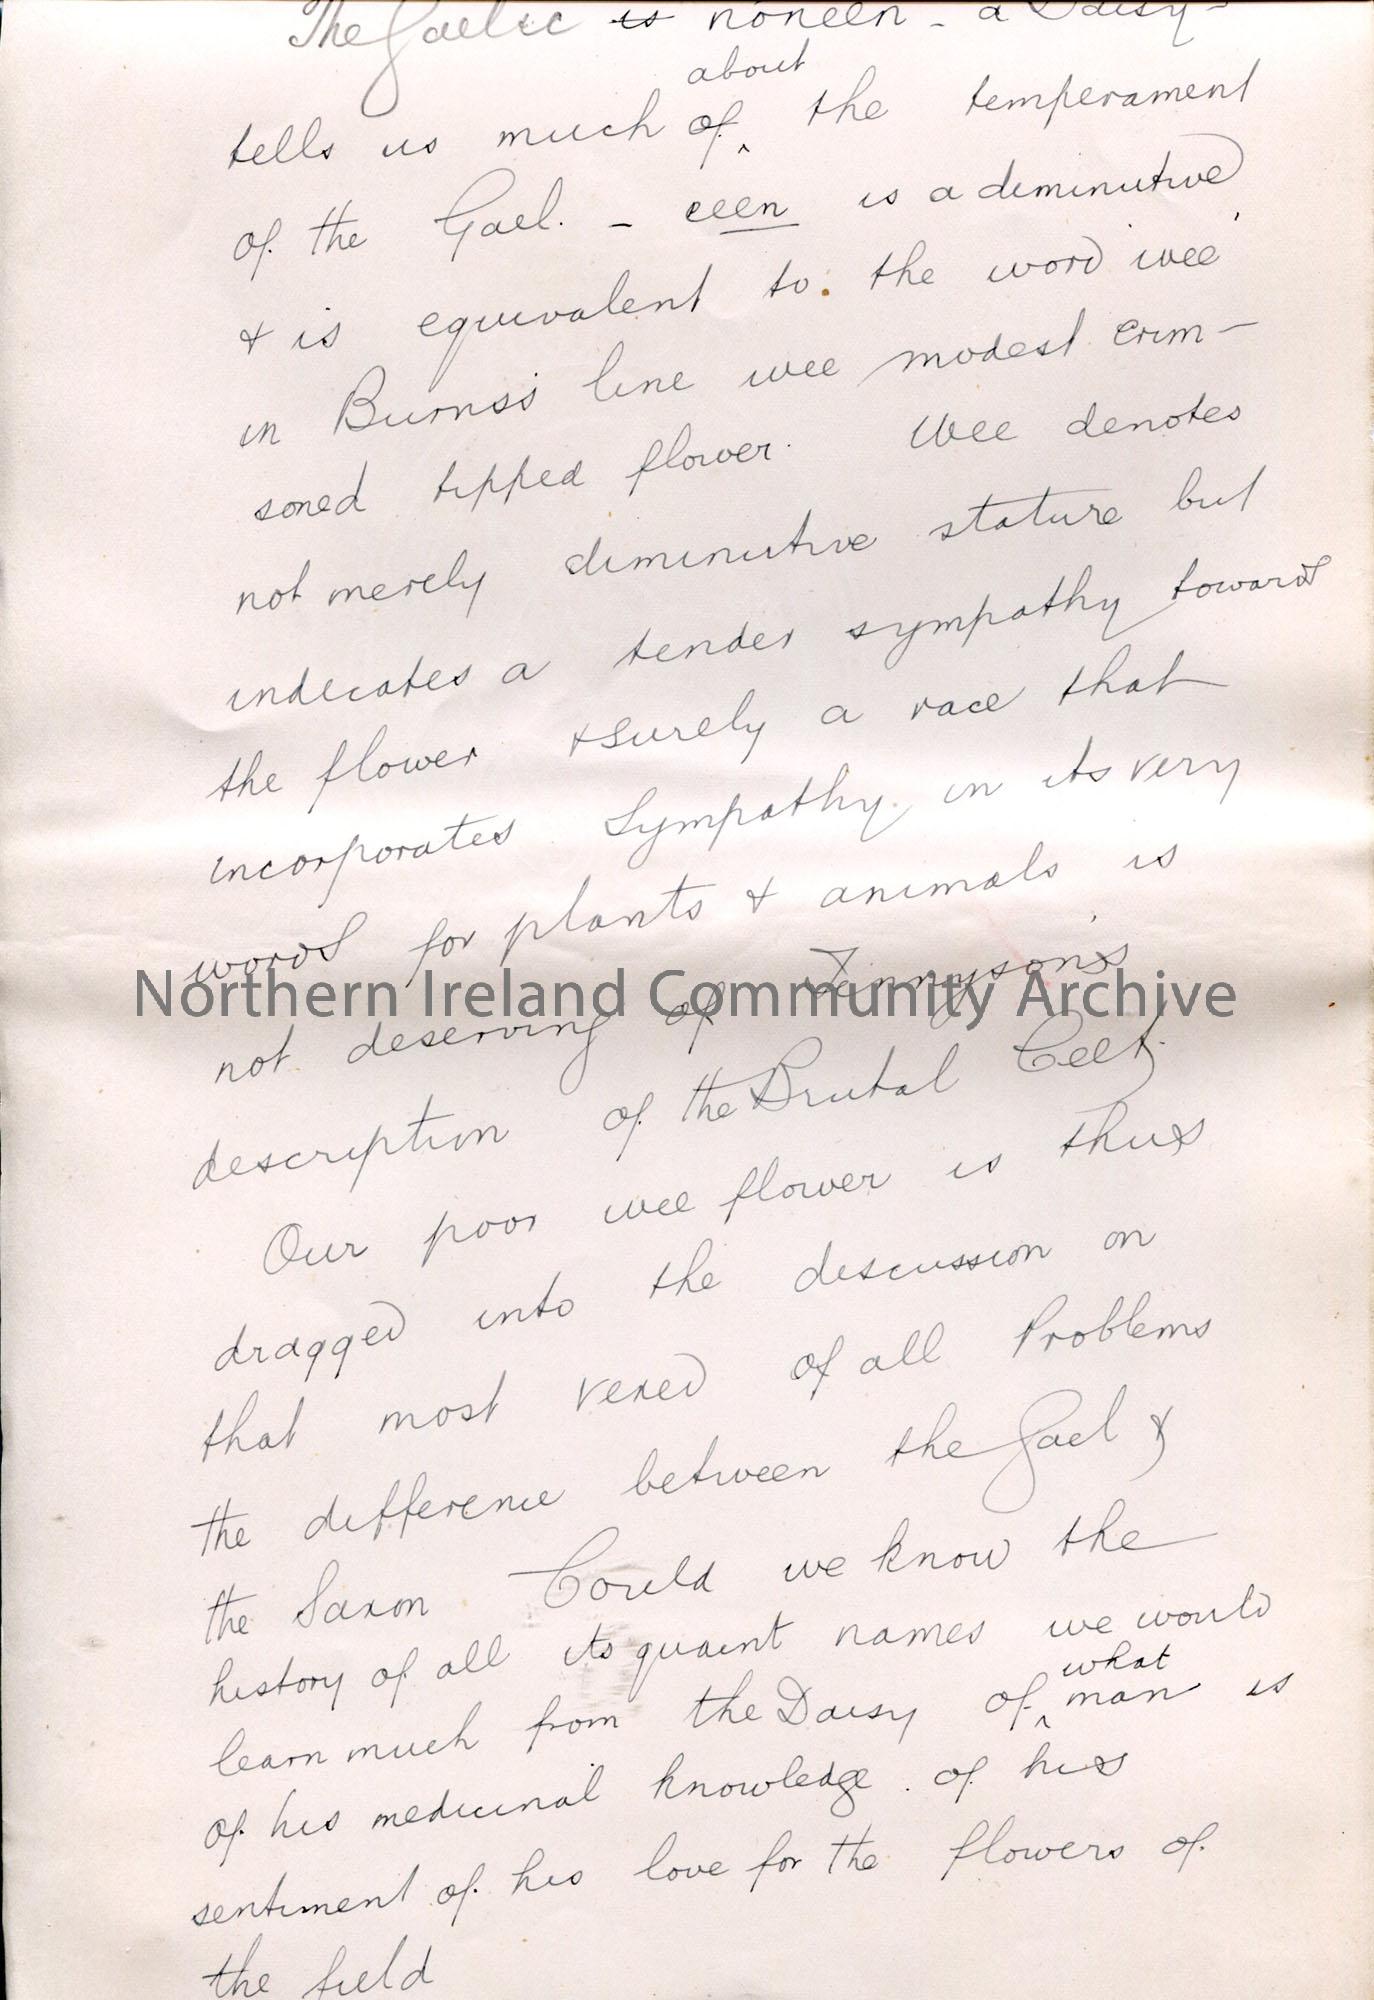 The Gaelic is noneen - a Daisy -
about
tells us much of the temperament
of the Gael. - eeen is a diminutive,
& is equivalent to the word wee
in Burns's line wee modest crim-
soned tipped flower. Wee denotes
not merely diminutive stature but
indicates a tender sympathy towards
the flower & surely a race that
incorporates sympathy in its very
words for plants & animals is
not deserving of Tennyson's
description of the Brutal Celt.
Our poor wee flower is thus
dragged into the discussion on
that most vexed of all Problems
the difference between the Gael &
the Saxon Could we know the
history of all its quaint names we would
what
learn much from the Daisy of man is
of his medicinal knowledge. of his
sentiment of his love for the flowers of
the field
Northern Ireland Community Archive